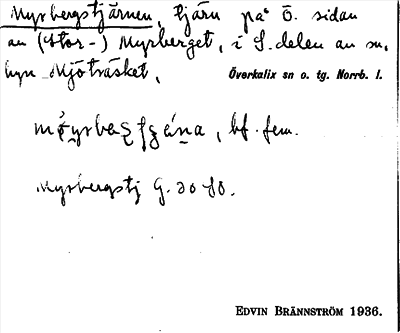 Myrbergstjärnen, tjärn på Ö. sidan
av (Stor-) Myrberget, i S. delen av sn,
byn Mjöträsket.
Överkalix sn o. tg. Norrb. l.
bf. fem.
Myrbergstj G. 20 SO.
EDVIN BRÄNNSTRÖM 1936.